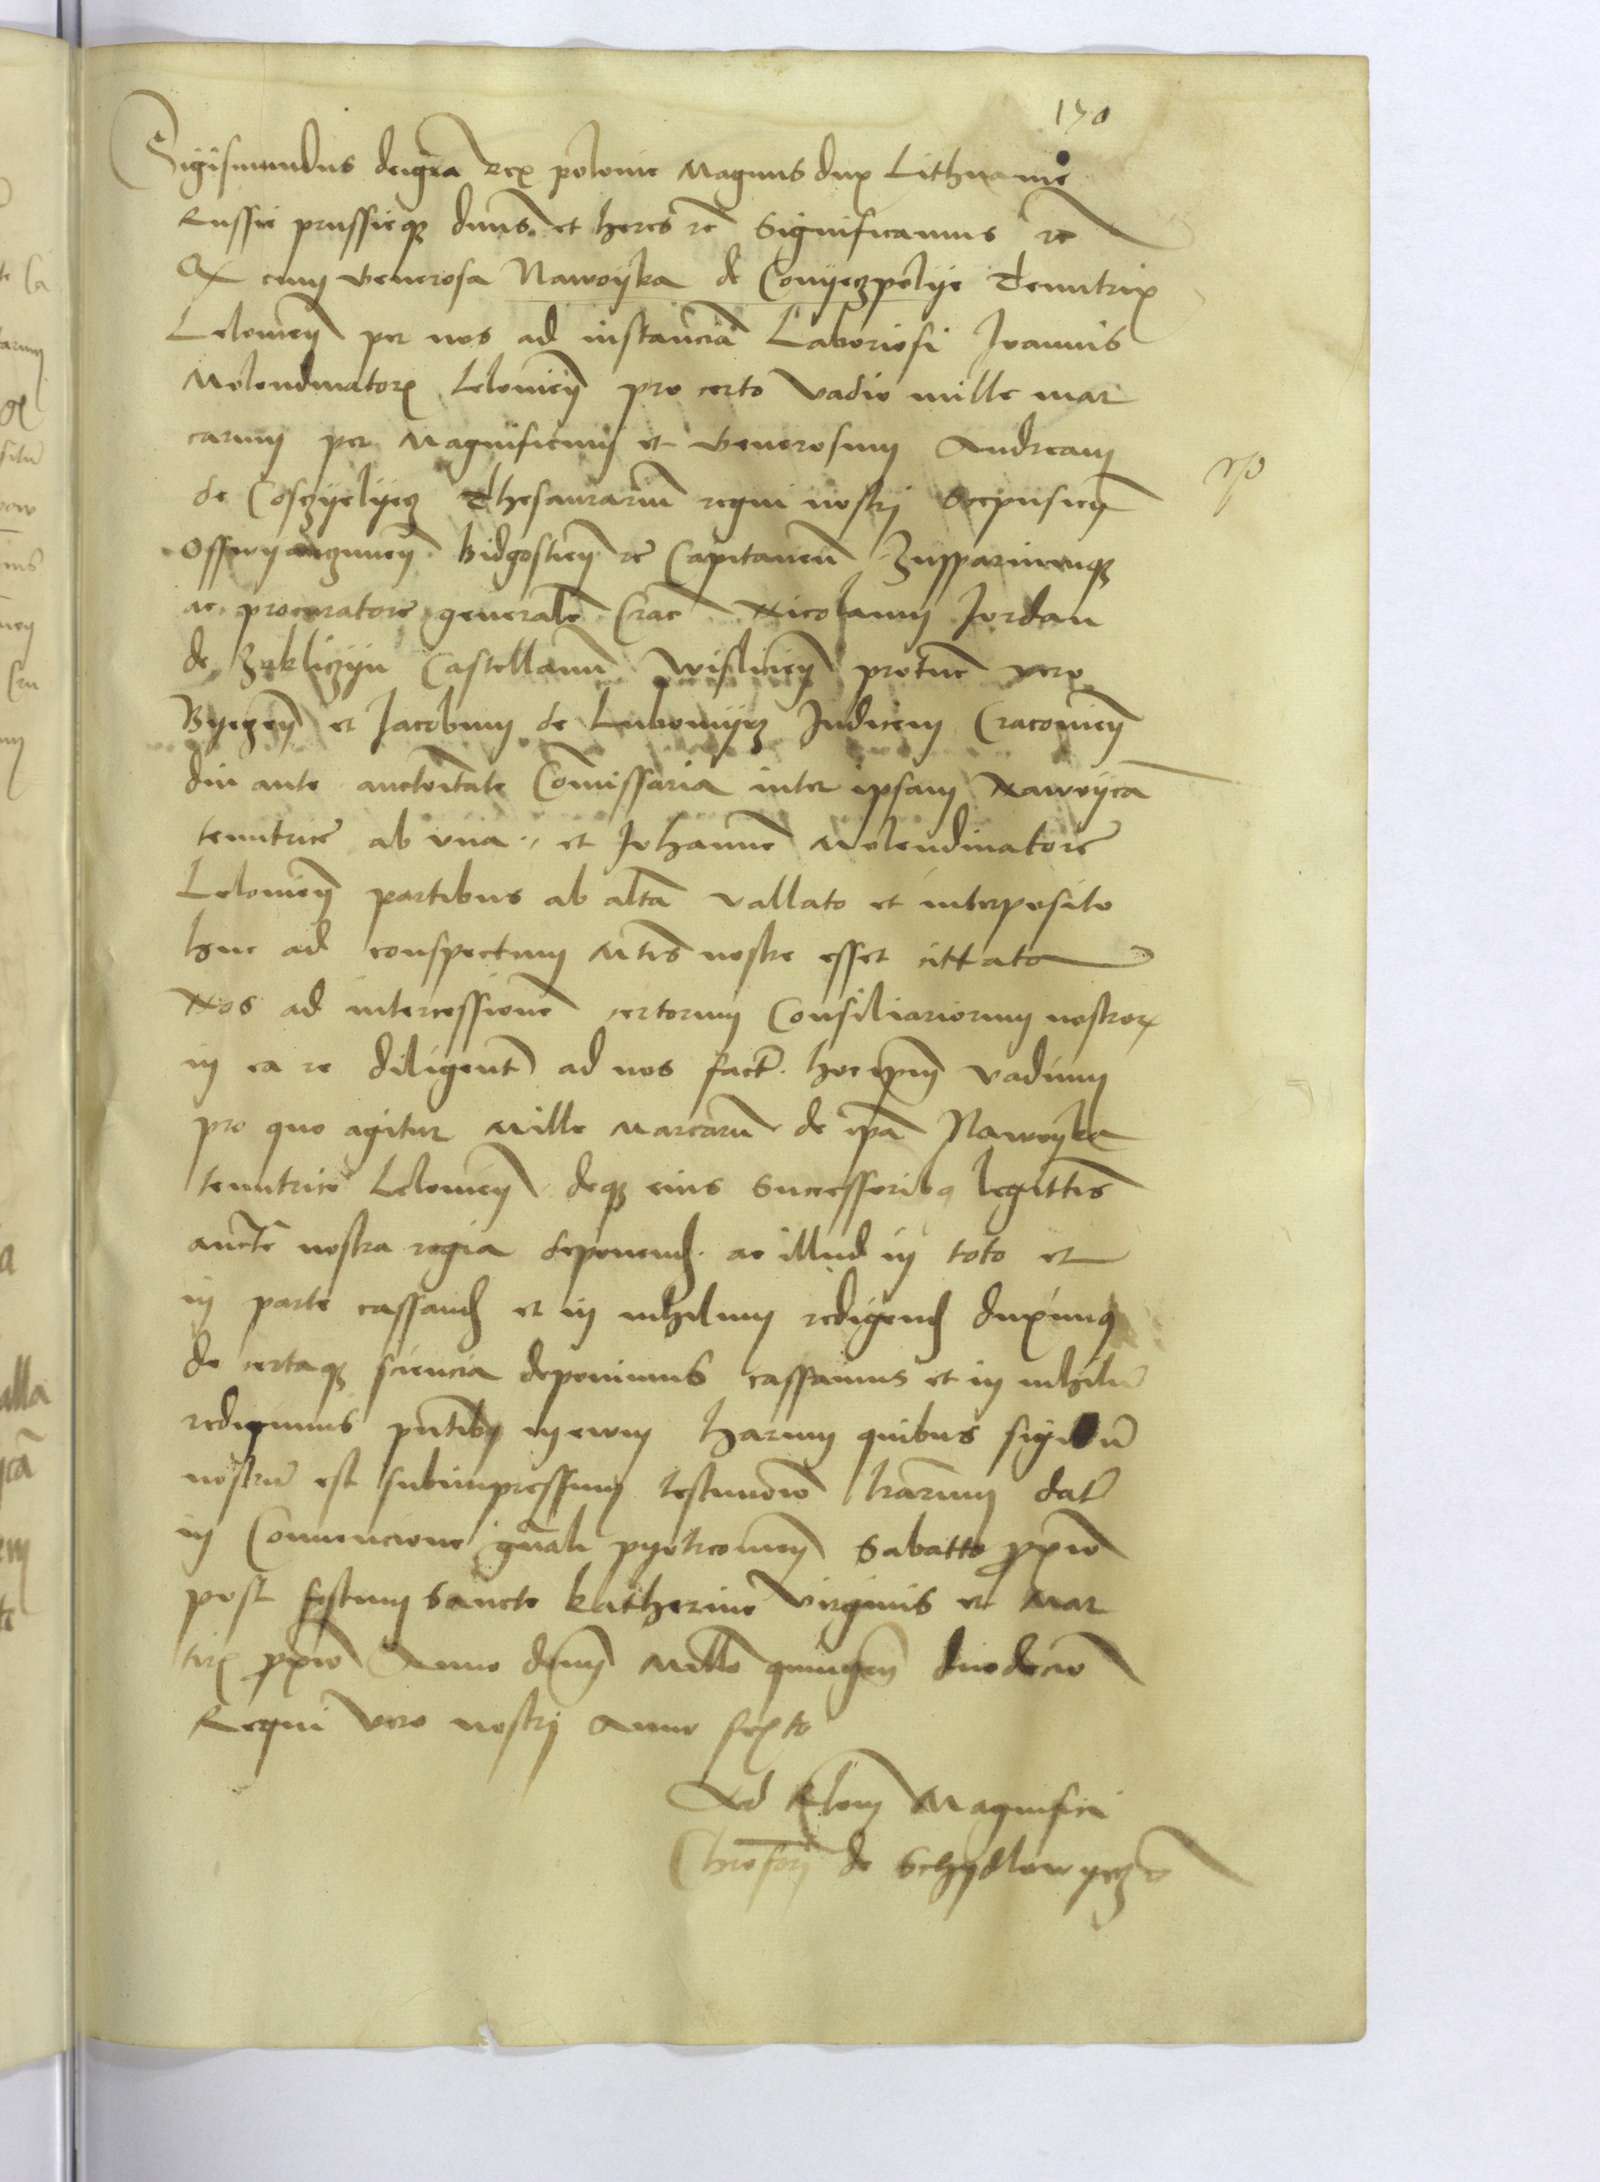 170
Sigismundus dei gra Rex polonie Magnus dux Lithuanie
Russie prussieq dnus et heres rc Significamus rc
Q cum Generosa Nawoyka de Conyeczpolye Tenutrix
Leloviens per nos ad instancia Laboriosi Joannis
Molendinatoris Leloviens pro certo vadio mille mar
carum per Magnificum et Generosum Andream
de Cosczyelyecz Thesaurariu regni nostri Scepusiens
Bidgostiens rc Capitaneu Zuppariumq
ac procuratore generale Crac Nicolaum Jordan
de Zakliczyn Castellanu Wisliciens protunc vero
Byeczens et Jacobum de Lubomyrz Judicem Cracoviens
diu ante auctoritate Comissaria inter ipsam Nawoyca
tenutrice ab una et Johanne Molendinatore
Leloviens partibus ab altra vallato et interposito
huc ad conspectum Mtis nostre esset cittata
Nos ad intercessione certorum Consiliariorum nostror
in ea re diligent ad nos fact hoc ipsum vadium
pro quo agitur Mille Marcaru de ipa Nawoyka
tenutrice Leloviens deq eius Successoribq legittis
aucte nostra regia deponend ac illud in toto et
in parte cassand et in nihilum redigend duximq
de certaq sciencia deponimus cassamus et in nihilu
redigimus pntibq harum quibus sigillu
nostru est subimpressum testimonio lrarum dat
in Convencione gnali pyotrcoviens Sabatto pxio
post festum Sancte Katherine virginis et Mar
tiris pxio Anno dni Millo quingen duodecio
Regni vero nostri Anno sexto
Ad Rlom Magnifici
Chrofori de Schydlowyecz rc